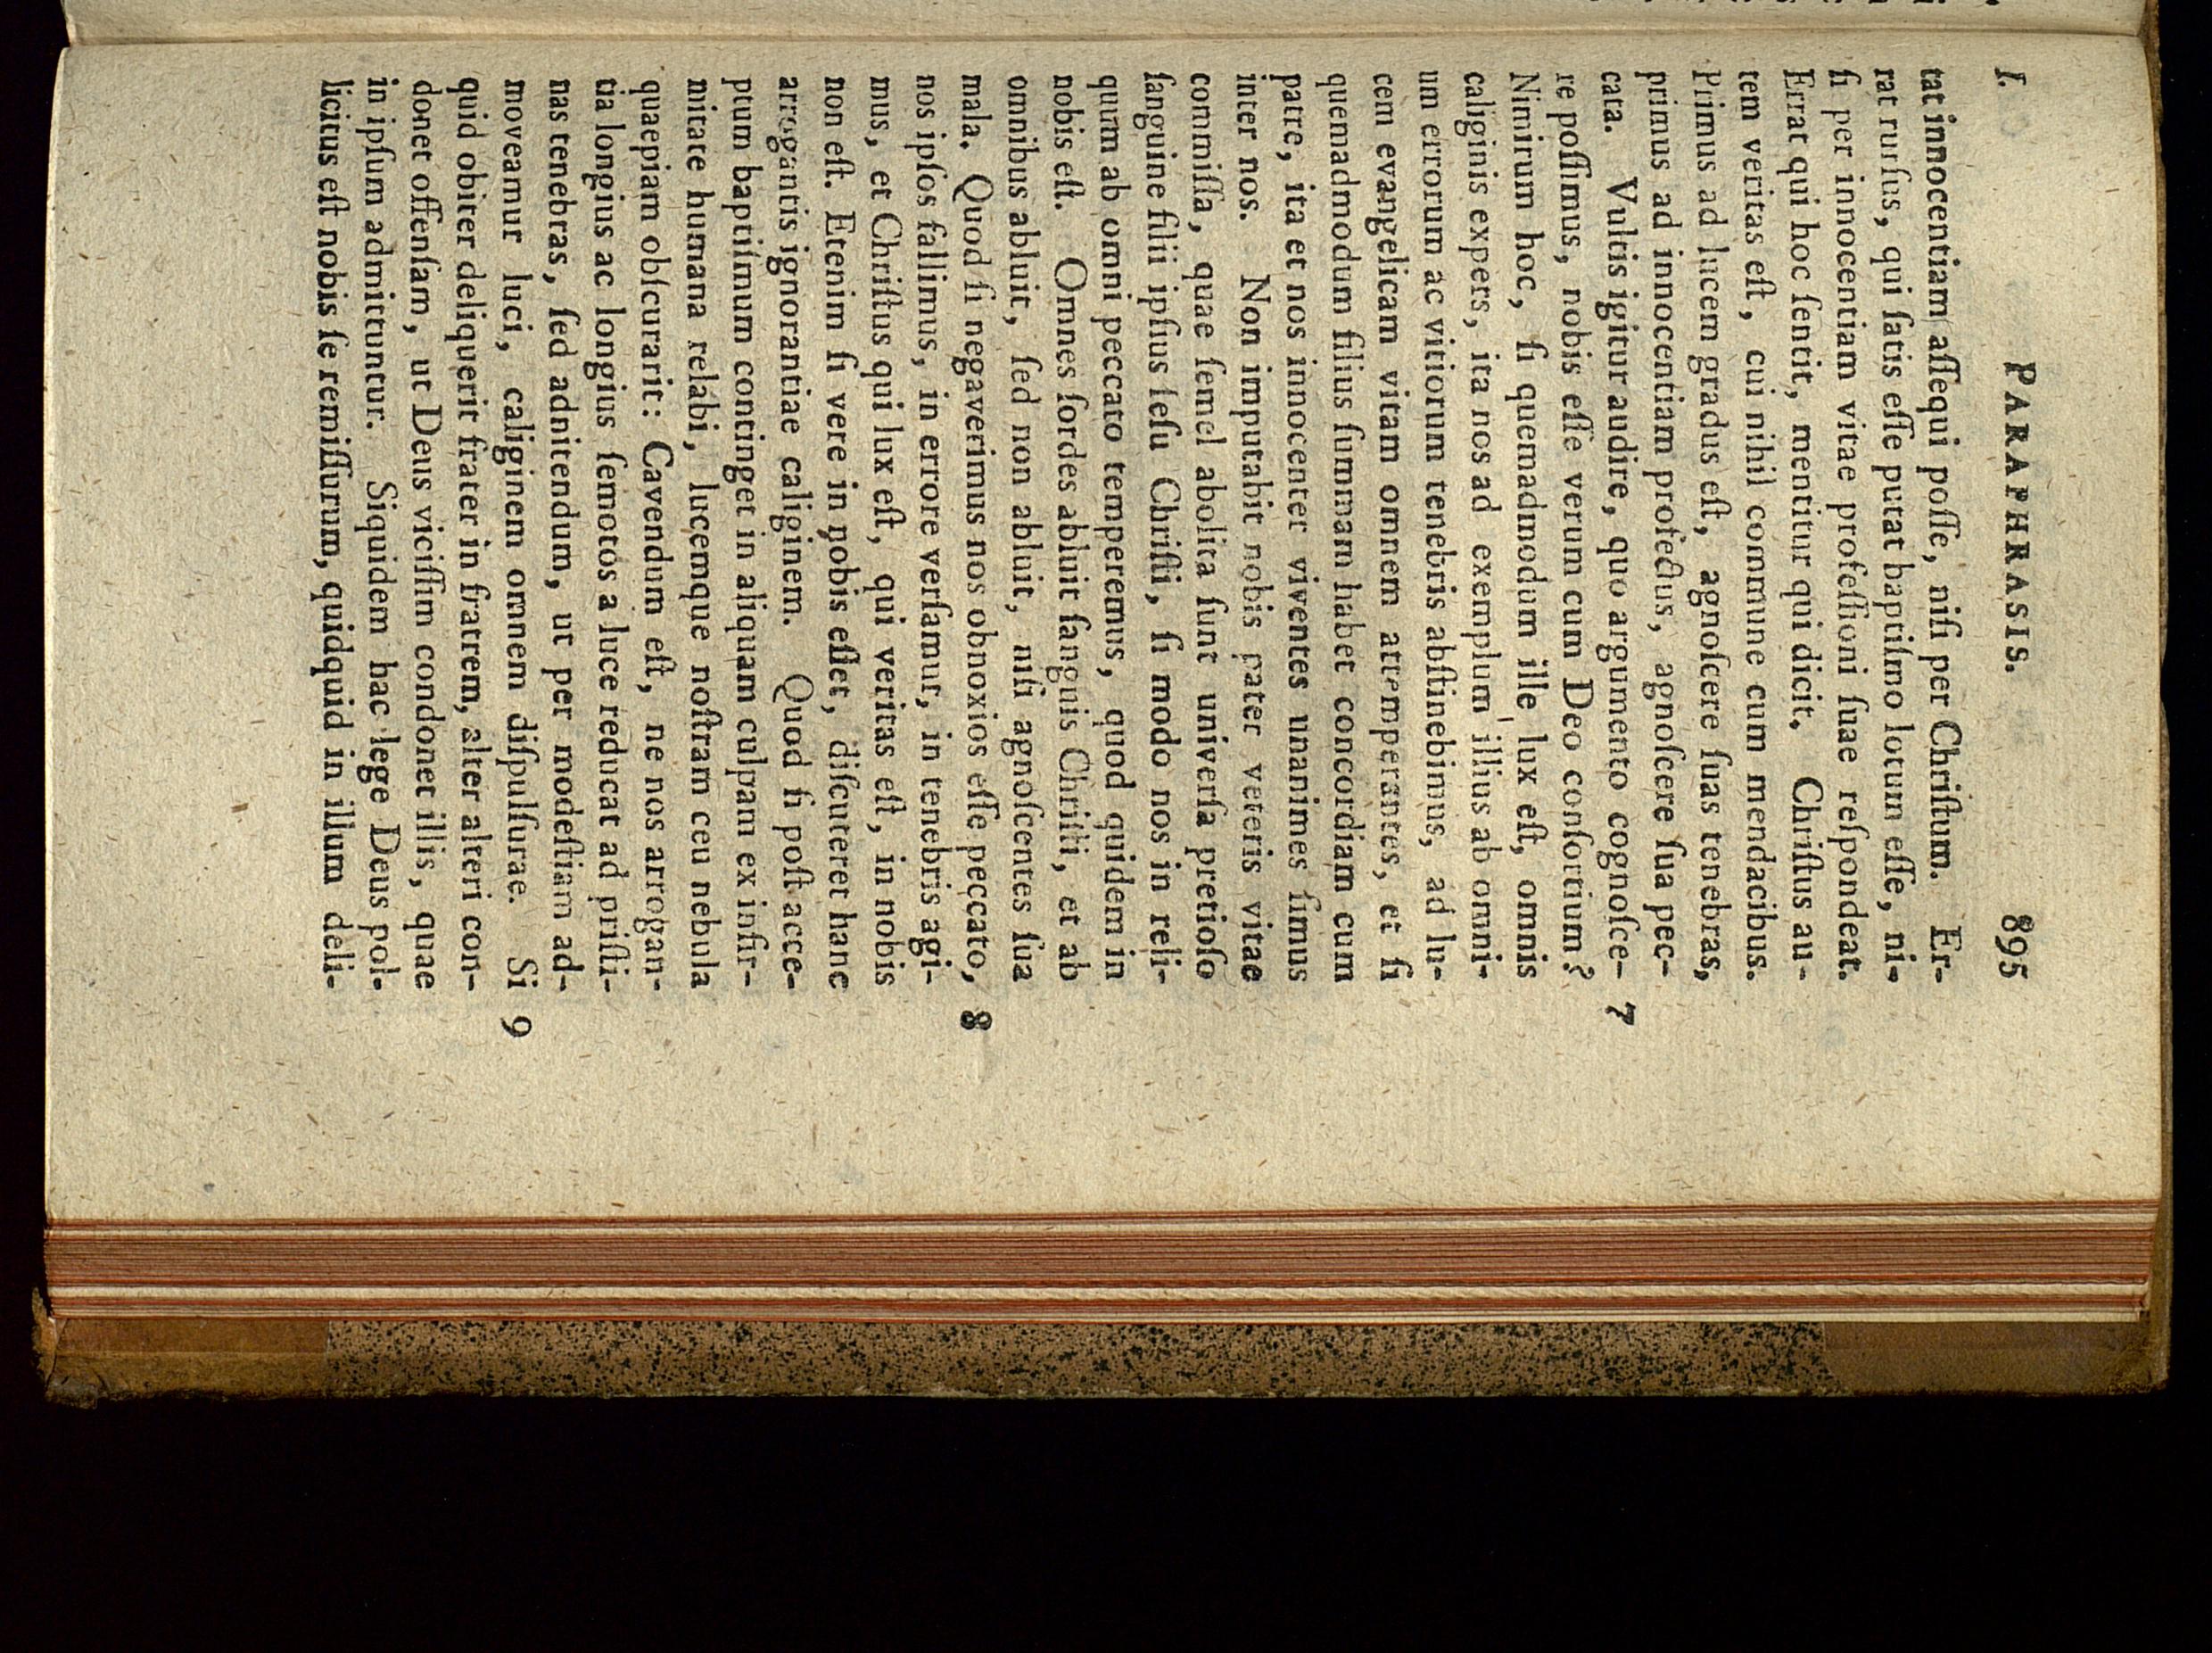 I. PARAPHRASIS. 895
tat innocentiam aſſequi poſſe, niſi per Chriſtum. Er-
rat rurſus, qui ſatis eſſe putat baptiſmo lotum eſſe, ni-
ſi per innocentiam vitae profeſſioni ſuae reſpondeat.
Errat qui hoc ſentit, mentitur qui dicit. Chriſtus au-
tem veritas eſt, cui nihil commune cum mendacibus.
Primus ad lucem gradus eſt, agnoſcere ſuas tenebras,
primus ad innocentiam profectus, agnoſcere ſua pec-
cata. Vultis igitur audire, quo argumento cognoſce- 7
re poſſimus, nobis eſſe verum cum Deo conſortium?
Nimirum hoc, ſi quemadmodum ille lux eſt, omnis
caliginis expers, ita nos ad exemplum illius ab omni-
um errorum ac vitiorum tenebris abſtinebimus, ad lu-
cem evangelicam vitam omnem attemperantes, et ſi
quemadmodum filius ſummam habet concordiam cum
patre, ita et nos innocenter viventes unanimes ſimus
inter nos. Non imputabit nobis pater veteris vitae
commiſſa, quae ſemel abolita ſunt univerſa pretioſo
ſanguine filii ipſius Ieſu Chriſti, ſi modo nos in reli-
quum ab omni peccato temperemus, quod quidem in
nobis eſt. Omnes ſordes abluit ſanguis Chriſti, et ab
omnibus abluit, ſed non abluit, niſi agnoſcentes ſua
mala. Quod ſi negaverimus nos obnoxios eſſe peccato, 8
nos ipſos fallimus, in errore verſamur, in tenebris agi-
mus, et Chriſtus qui lux eſt, qui veritas eſt, in nobis
non eſt. Etenim ſi vere in nobis eſſet, diſcuteret hanc
arrogantis ignorantiae caliginem. Quod ſi poſt acce-
ptum baptiſmum continget in aliquam culpam ex infir-
mitate humana relabi, lucemque noſtram ceu nebula
quaepiam obſcurarit: Cavendum eſt, ne nos arrogan-
tia longius ac longius ſemotos a luce reducat ad priſti-
nas tenebras, ſed adnitendum, ut per modeſtiam ad-
moveamur luci, caliginem omnem diſpulſurae. Si 9
quid obiter deliquerit frater in fratrem, alter alteri con-
donet offenſam, ut Deus viciſſim condonet illis, quae
in ipſum admittuntur. Siquidem hac lege Deus pol-
licitus eſt nobis ſe remiſſurum, quidquid in illum deli-